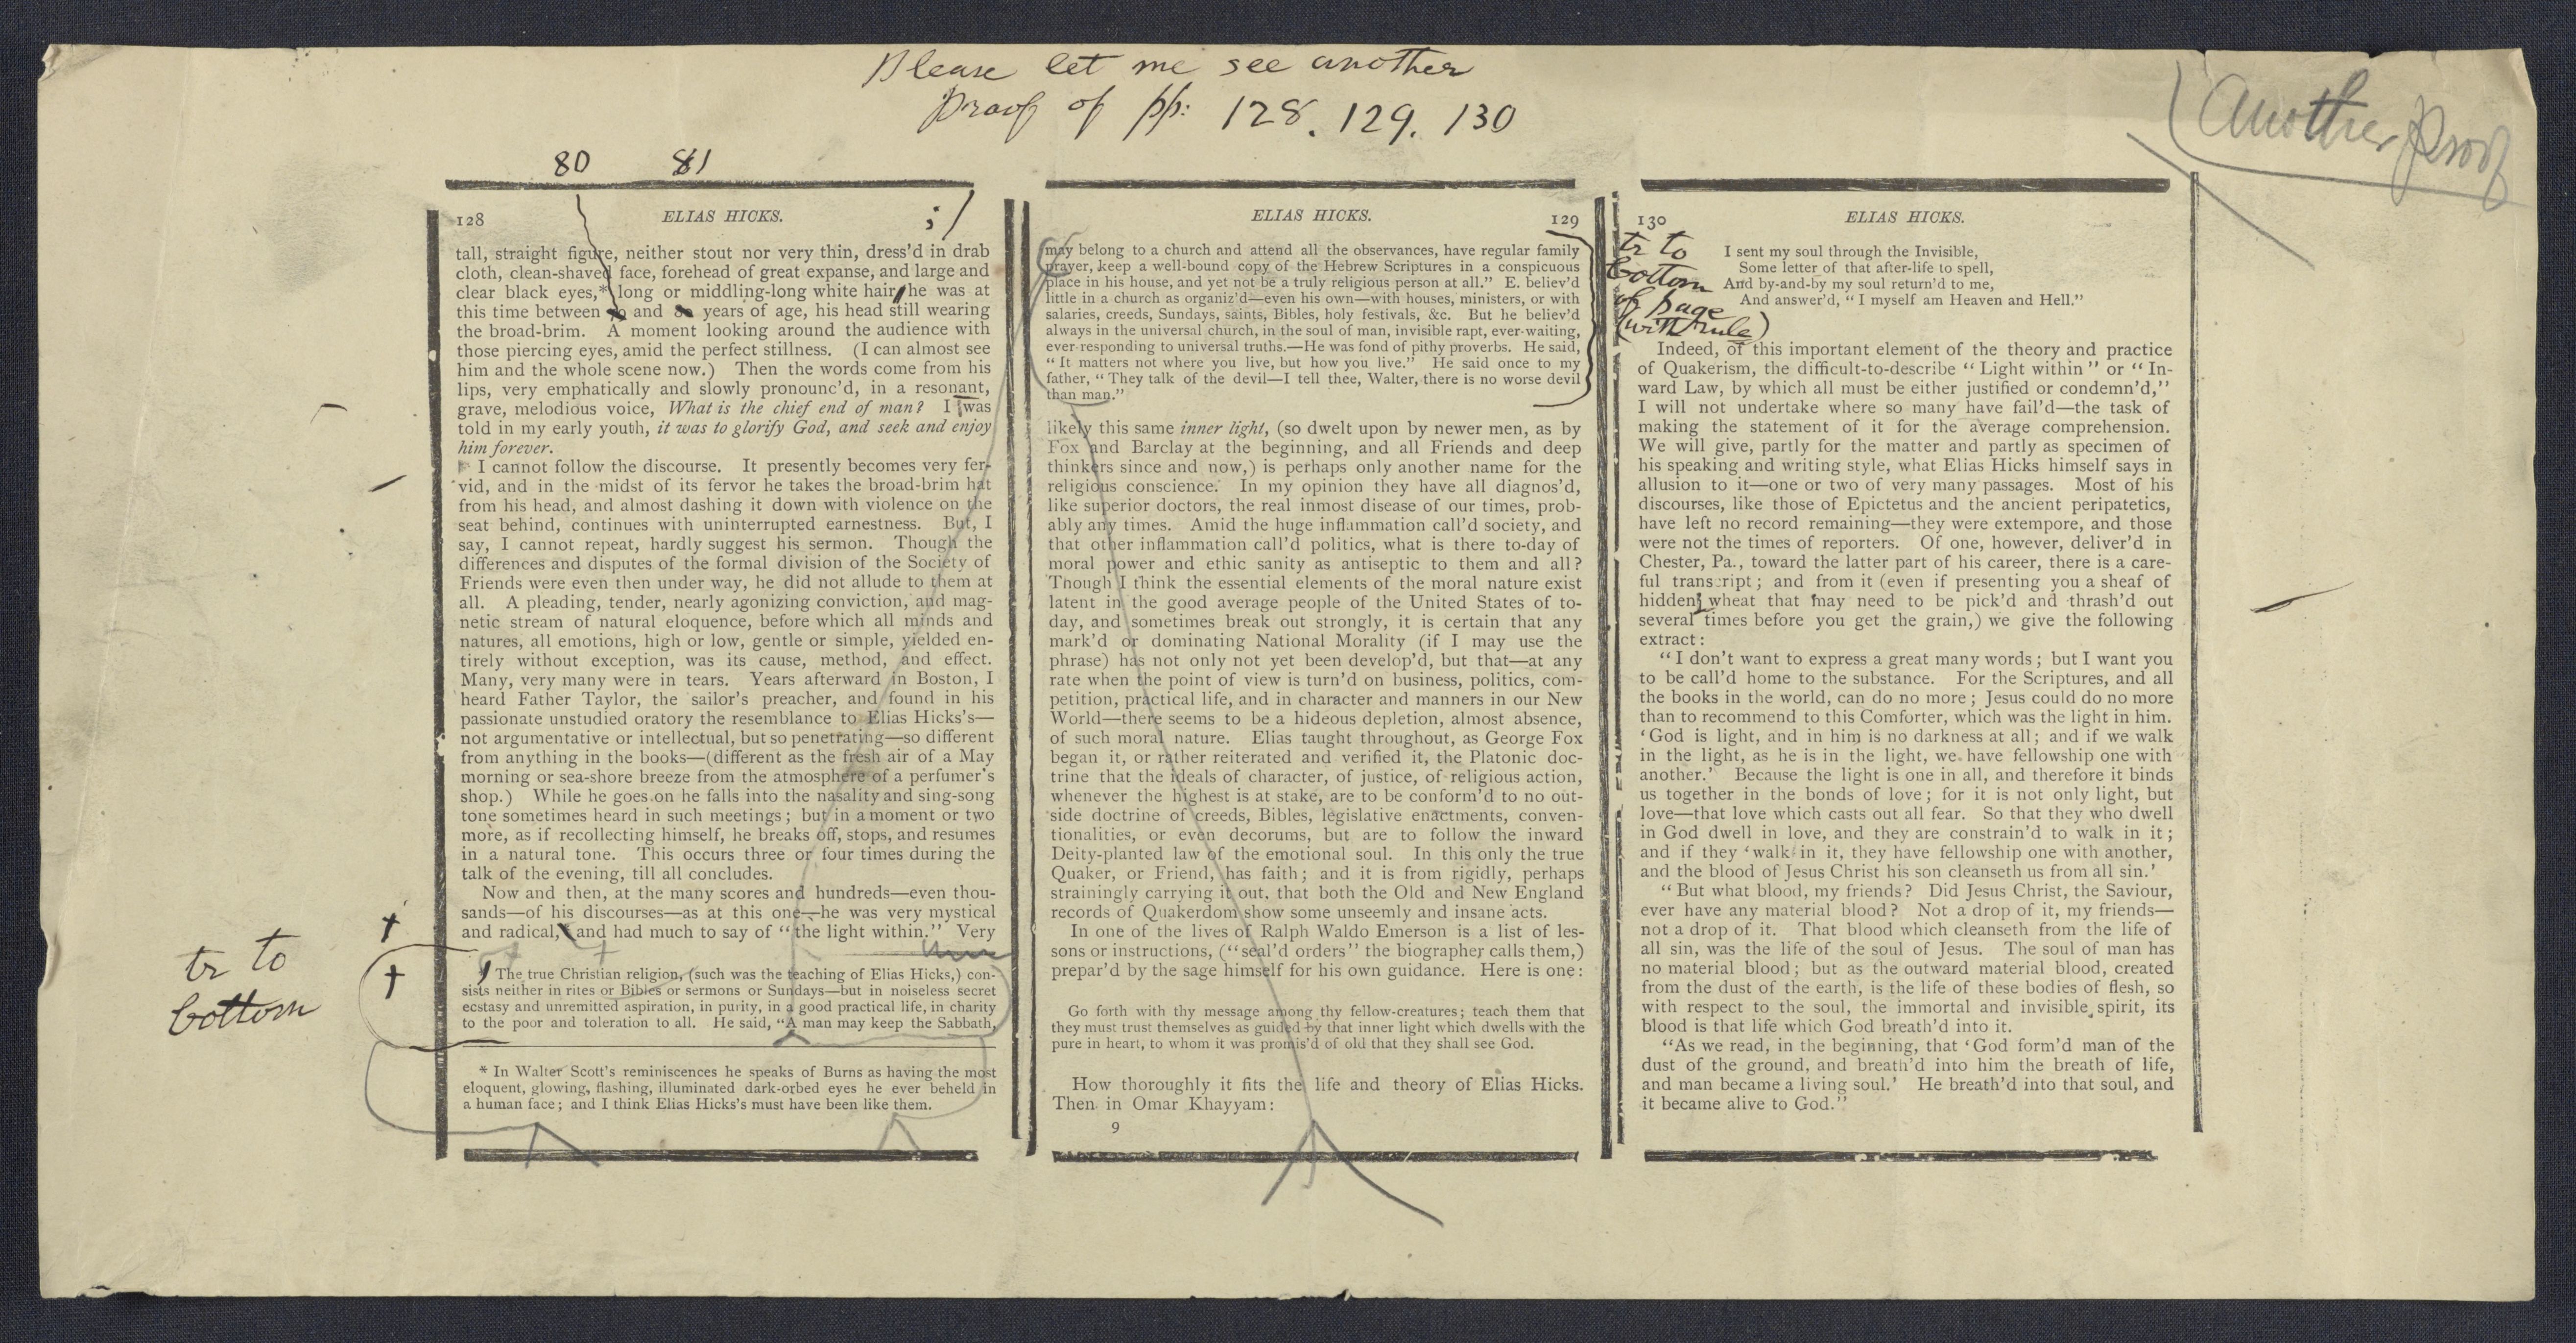 Please let me see another
proof of pp: 128. 129. 130
Another Proof
80 81
128 ELIAS HICKS. ;/
tall, straight figure, neither stout nor very thin, dress'd in drab
cloth, clean-shaved face, forehead of great expanse, and large and
clear black eyes,* long or middling-long white hair, he was at
this time between and years of age, his head still wearing
the broad-brim. A moment looking around the audience with
those piercing eyes, amid the perfect stillness. (I can almost see
him and the whole scene now.) Then the words come from his
lips, very emphatically and slowly pronounc'd, in a resonant,
grave, melodious voice, What is the chief end of man? I was
told in my early youth, it was to glorify God, and seek and enjoy
him forever.
I cannot follow the discourse. It presently becomes very fer-
vid, and in the midst of its fervor he takes the broad-brim hat
from his head, and almost dashing it down with violence on the
seat behind, continues with uninterrupted earnestness. But, I
say, I cannot repeat, hardly suggest his sermon. Though the
differences and disputes of the formal division of the Society of
Friends were even then under way, he did not allude to them at
all. A pleading, tender, nearly agonizing conviction, and mag-
netic stream of natural eloquence, before which all minds and
natures, all emotions, high or low, gentle or simple, yielded en-
tirely without exception, was its cause, method, and effect.
Many, very many were in tears. Years afterward in Boston, I
heard Father Taylor, the sailor's preacher, and found in his
passionate unstudied oratory the resemblance to Elias Hicks's—
not argumentative or intellectual, but so penetrating—so different
from anything in the books—(different as the fresh air of a May
morning or sea-shore breeze from the atmosphere of a perfumer's
shop.) While he goes on he falls into the nasality and sing-song
tone sometimes heard in such meetings; but in a moment or two
more, as if recollecting himself, he breaks off, stops, and resumes
in a natural tone. This occurs three or four times during the
talk of the evening, till all concludes.
Now and then, at the many scores and hundreds—even thou-
sands—of his discourses—as at this one—he was very mystical
and radical, and had much to say of "the light within." Very
†
tr to
bottom
†
The true Christian religion, (such was the teaching of Elias Hicks,) con-
sists neither in rites or Bibles or sermons or Sundays—but in noiseless secret
ecstasy and unremitted aspiration, in purity, in a good practical life, in charity
to the poor and toleration to all. He said, "A man may keep the Sabbath,
* In Walter Scott's reminiscences he speaks of Burns as having the most
eloquent, glowing, flashing, illuminated dark-orbed eyes he ever beheld in
a human face; and I think Elias Hicks's must have been like them.
ELIAS HICKS. 129
may belong to a church and attend all the observances, have regular family
prayer, keep a well-bound copy of the Hebrew Scriptures in a conspicuous
place in his house, and yet not be a truly religious person at all." E. believ'd
little in a church as organiz'd—even his own—with houses, ministers, or with
salaries, creeds, Sundays, saints, Bibles, holy festivals, &c. But he believ'd
always in the universal church, in the soul of man, invisible rapt, ever-waiting,
ever-responding to universal truths.—He was fond of pithy proverbs. He said,
"It matters not where you live, but how you live." He said once to my
father, "They talk of the devil—I tell thee, Walter, there is no worse devil
than man."
likely this same inner light, (so dwelt upon by newer men, as by
Fox and Barclay at the beginning, and all Friends and deep
thinkers since and now,) is perhaps only another name for the
religious conscience. In my opinion they have all diagnos'd,
like superior doctors, the real inmost disease of our times, prob-
ably any times. Amid the huge inflammation call'd society, and
that other inflammation call'd politics, what is there to-day of
moral power and ethic sanity as antiseptic to them and all?
Though I think the essential elements of the moral nature exist
latent in the good average people of the United States of to-
day, and sometimes break out strongly, it is certain that any
mark'd or dominating National Morality (if I may use the
phrase) has not only not yet been develop'd, but that—at any
rate when the point of view is turn'd on business, politics, com-
petition, practical life, and in character and manners in our New
World—there seems to be a hideous depletion, almost absence,
of such moral nature. Elias taught throughout, as George Fox
began it, or rather reiterated and verified it, the Platonic doc-
trine that the ideals of character, of justice, of religious action,
whenever the highest is at stake, are to be conform'd to no out-
side doctrine of creeds, Bibles, legislative enactments, conven-
tionalities, or even decorums, but are to follow the inward
Deity-planted law of the emotional soul. In this only the true
Quaker, or Friend, has faith; and it is from rigidly, perhaps
strainingly carrying it out, that both the Old and New England
records of Quakerdom show some unseemly and insane acts.
In one of the lives of Ralph Waldo Emerson is a list of les-
sons or instructions, ("seal'd orders" the biographer calls them,)
prepar'd by the sage himself for his own guidance. Here is one:
Go forth with thy message among thy fellow-creatures; teach them that
they must trust themselves as guided by that inner light which dwells with the
pure in heart, to whom it was promis'd of old that they shall see God.
How thoroughly it fits the life and theory of Elias Hicks.
Then in Omar Khayyam:
9
130 ELIAS HICKS.
tr to
bottom
of page
(with rule)
I sent my soul through the Invisible,
Some letter of that after-life to spell,
And by-and-by my soul return'd to me,
And answer'd, "I myself am Heaven and Hell."
Indeed, of this important element of the theory and practice
of Quakerism, the difficult-to-describe "Light within" or "In-
ward Law, by which all must be either justified or condemn'd,"
I will not undertake where so many have fail'd—the task of
making the statement of it for the average comprehension.
We will give, partly for the matter and partly as specimen of
his speaking and writing style, what Elias Hicks himself says in
allusion to it—one or two of very many passages. Most of his
discourses, like those of Epictetus and the ancient peripatetics,
have left no record remaining—they were extempore, and those
were not the times of reporters. Of one, however, deliver'd in
Chester, Pa., toward the latter part of his career, there is a care-
ful transcript; and from it (even if presenting you a sheaf of
hidden wheat that may need to be pick'd and thrash'd out
several times before you get the grain,) we give the following
extract:
"I don't want to express a great many words; but I want you
to be call'd home to the substance. For the Scriptures, and all
the books in the world, can do no more; Jesus could do no more
than to recommend to this Comforter, which was the light in him.
'God is light, and in him is no darkness at all; and if we walk
in the light, as he is in the light, we have fellowship one with
another.' Because the light is one in all, and therefore it binds
us together in the bonds of love; for it is not only light, but
love—that love which casts out all fear. So that they who dwell
in God dwell in love, and they are constrain'd to walk in it;
and if they 'walk in it, they have fellowship one with another,
and the blood of Jesus Christ his son cleanseth us from all sin.'
"But what blood, my friends? Did Jesus Christ, the Saviour,
ever have any material blood? Not a drop of it, my friends—
not a drop of it. That blood which cleanseth from the life of
all sin, was the life of the soul of Jesus. The soul of man has
no material blood; but as the outward material blood, created
from the dust of the earth, is the life of these bodies of flesh, so
with respect to the soul, the immortal and invisible spirit, its
blood is that life which God breath'd into it.
"As we read, in the beginning, that 'God form'd man of the
dust of the ground, and breath'd into him the breath of life,
and man became a living soul.' He breath'd into that soul, and
it became alive to God."